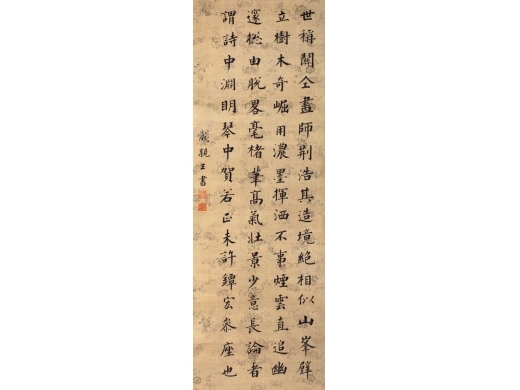 世稱關仝畫師荆浩其造境絕相似山峯辟
立樹木奇崛用濃墨揮洒不事煙雲直追幽
邃總由脫畧毫楮筆髙氣壯景少意長論者
謂詩中淵明琴中賀若正未許鐔宏叅座也
親王書